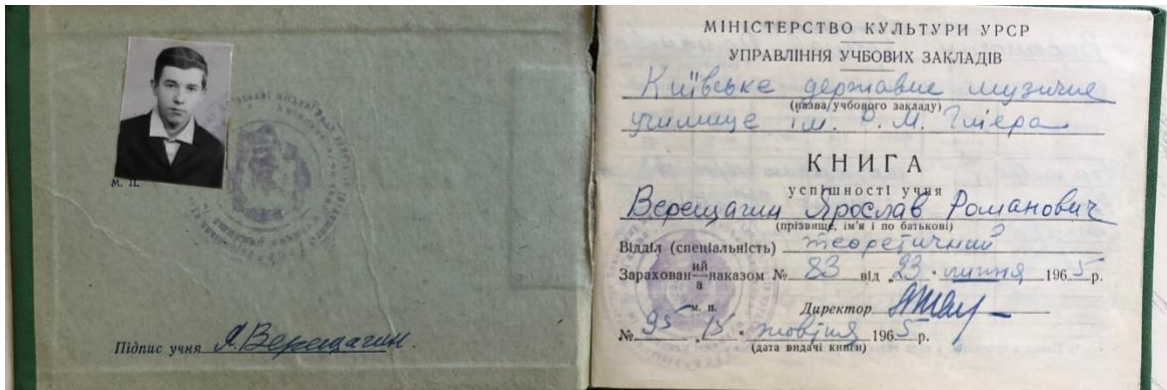 м. п.
Підпис учня Я. Верещагин.
МІНІСТЕРСТВО КУЛЬТУРИ УРСР
УПРАВЛІННЯ УЧБОВИХ ЗАКЛАДІВ
Київське державне музичне
(назва учбового закладу)
училище ім. Р. М. Глієра
КНИГА
успішності учня
Верещагин Ярослав Романович
(прізвище, ім'я і по батькові)
Відділ (спеціальність) теоретичний
Зарахован ий/а наказом № 83 від „23" липня 1965 р.
м. п. Директор
№ 95 „15" жовтня 1965 р.
(дата видачі книги)